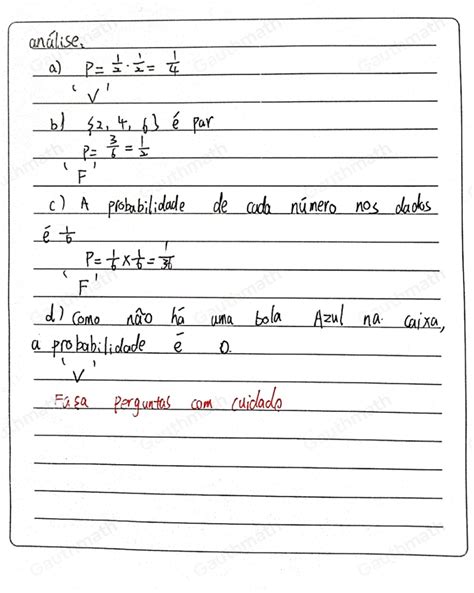 análise.
a) P= 1/2 · 1/2 = 1/4
' V '
b) {2, 4, 6} é par
P= 3/6 = 1/2
' F '
c) A probabilidade de cada número nos dados
é 1/6
P= 1/6 × 1/6 = 1/36
' F '
d) Como não há uma bola Azul na caixa,
a probabilidade é 0.
' V '
Faça perguntas com cuidado